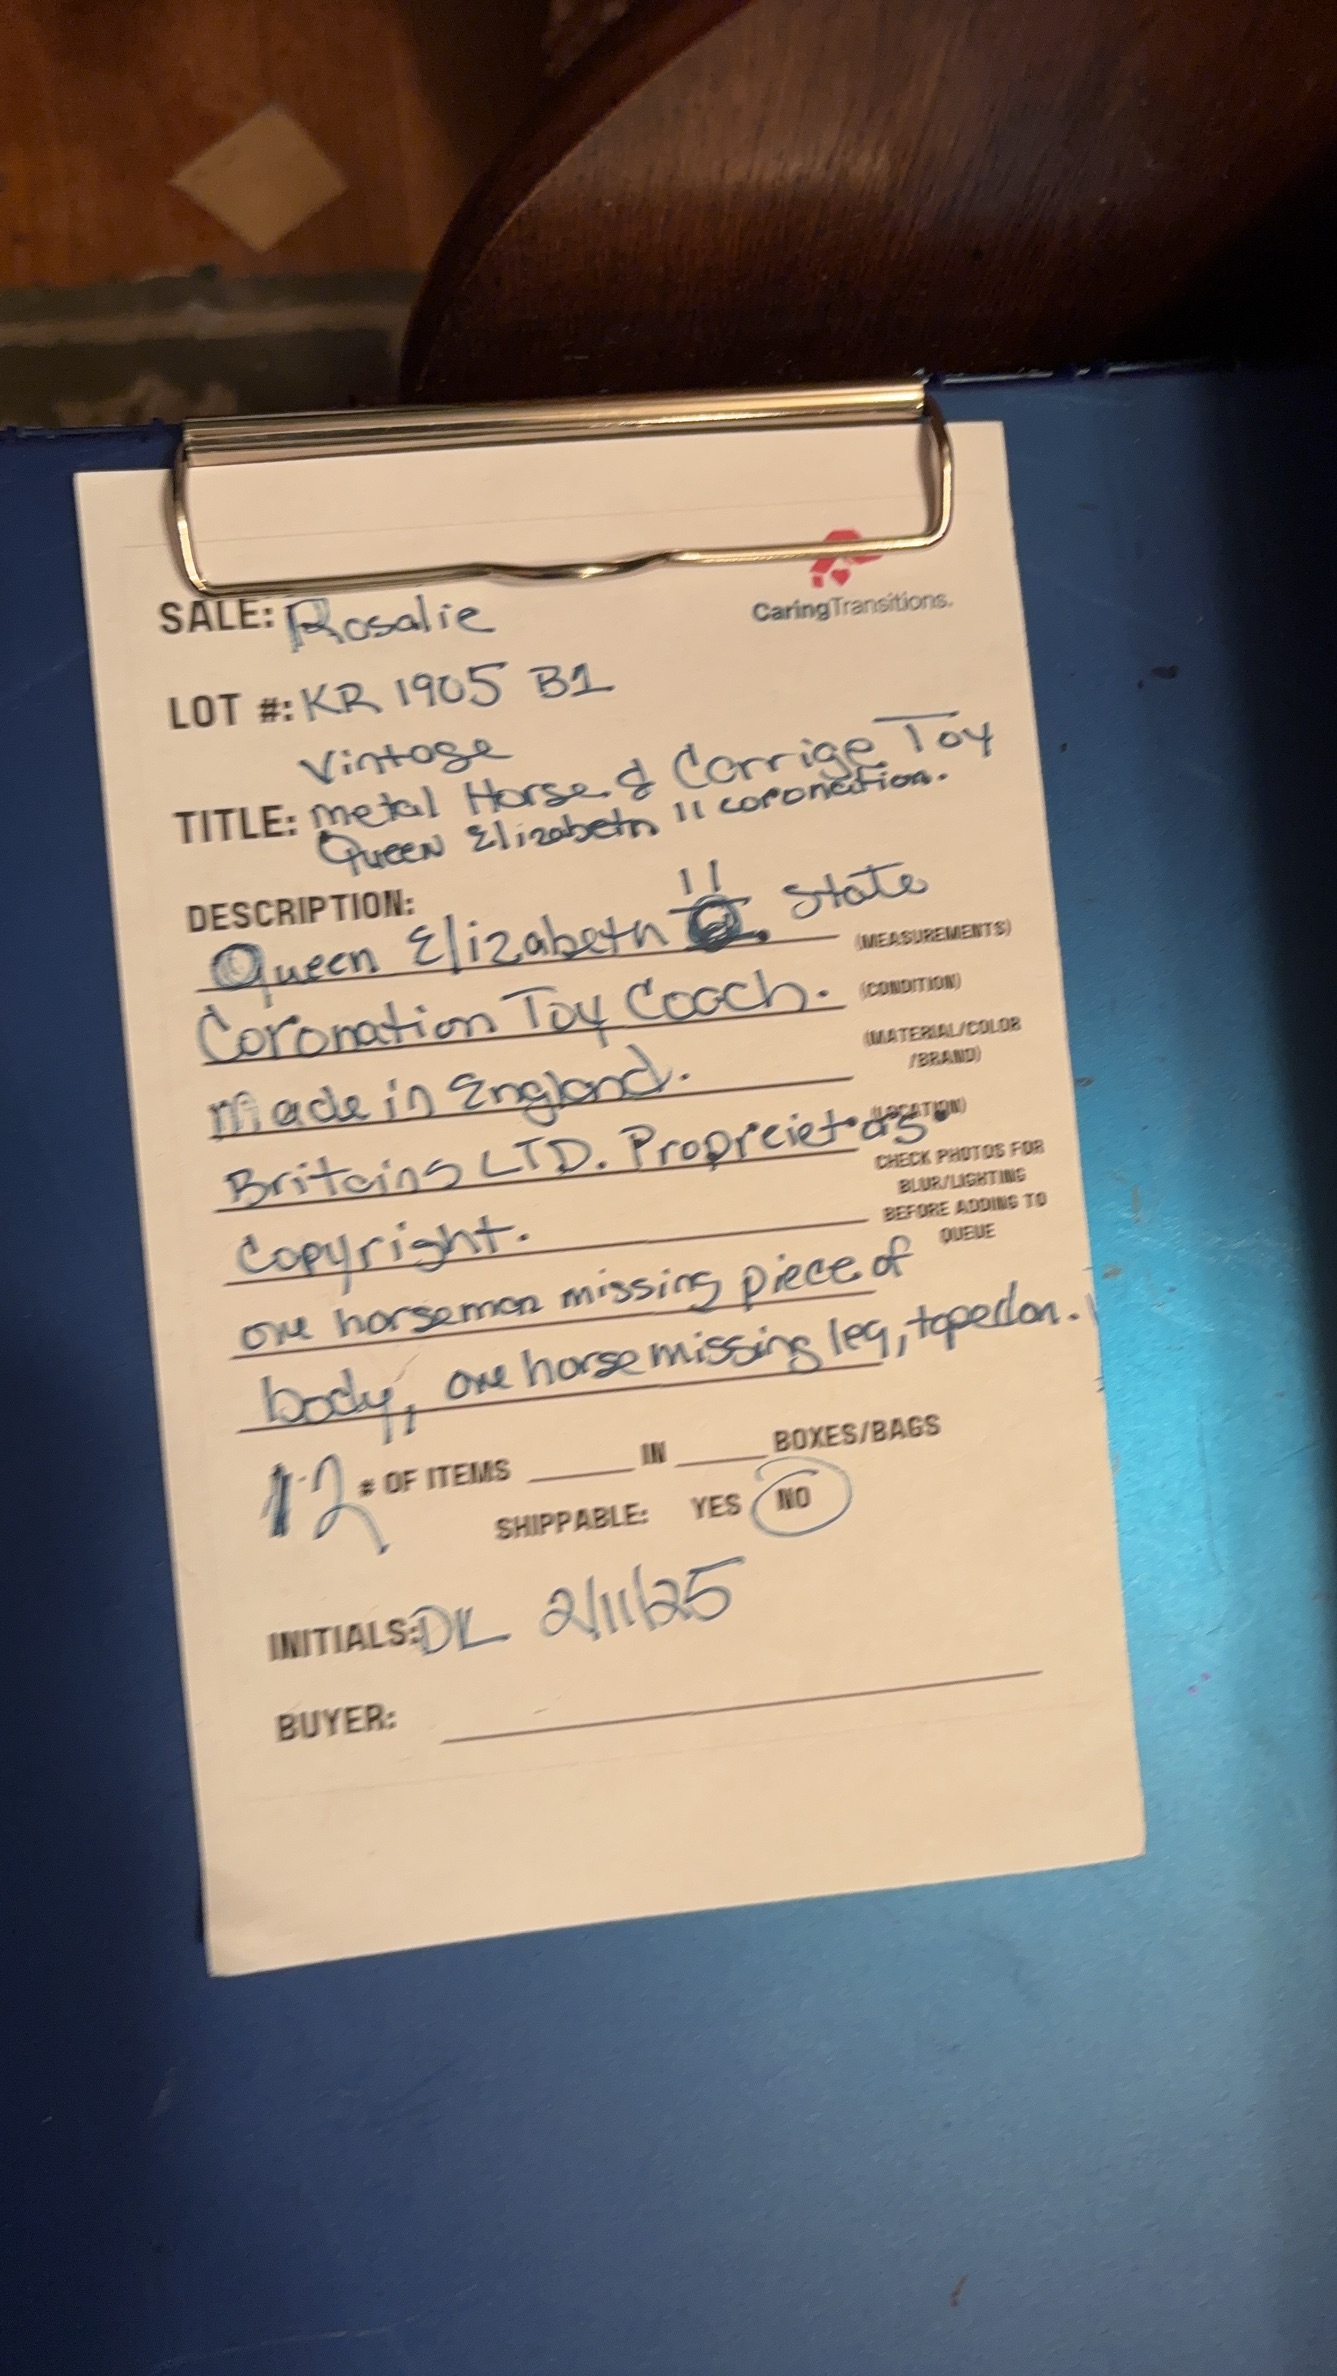 CaringTransitions.
SALE: Rosalie
LOT #: KR 1905 B1
Vintage
TITLE: metal Horse & Carrige Toy
Queen Elizabeth 11 coronation.
DESCRIPTION:
Queen Elizabeth II. State
(MEASUREMENTS)
Coronation Toy Coach.
(CONDITION)
(MATERIAL/COLOR
/BRAND)
Made in England.
(LOCATION)
Britains LTD. Propreietors.
CHECK PHOTOS FOR
BLUR/LIGHTING
BEFORE ADDING TO
QUEUE
Copyright.
one horseman missing piece of
body, one horse missing leg, taped on.
12 # OF ITEMS ____ IN ____ BOXES/BAGS
SHIPPABLE: YES NO
INITIALS: DL 2/11/25
BUYER: